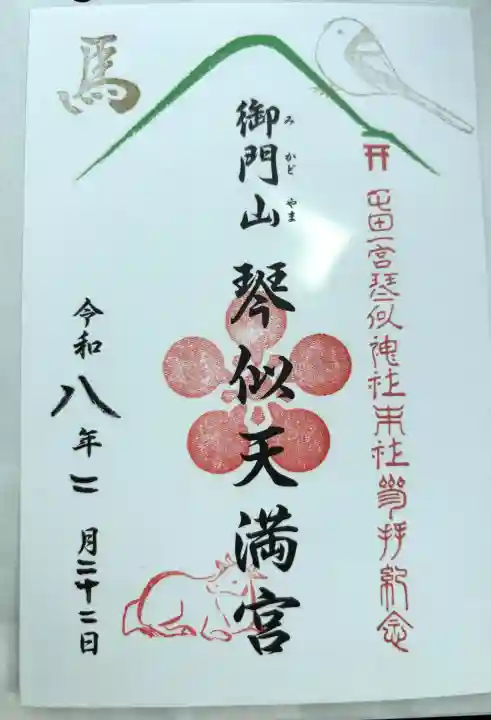 屯田一宮琴似神社末社参拝紀念
御門山 琴似天満宮
みかどやま
馬
令和八年二月二十二日